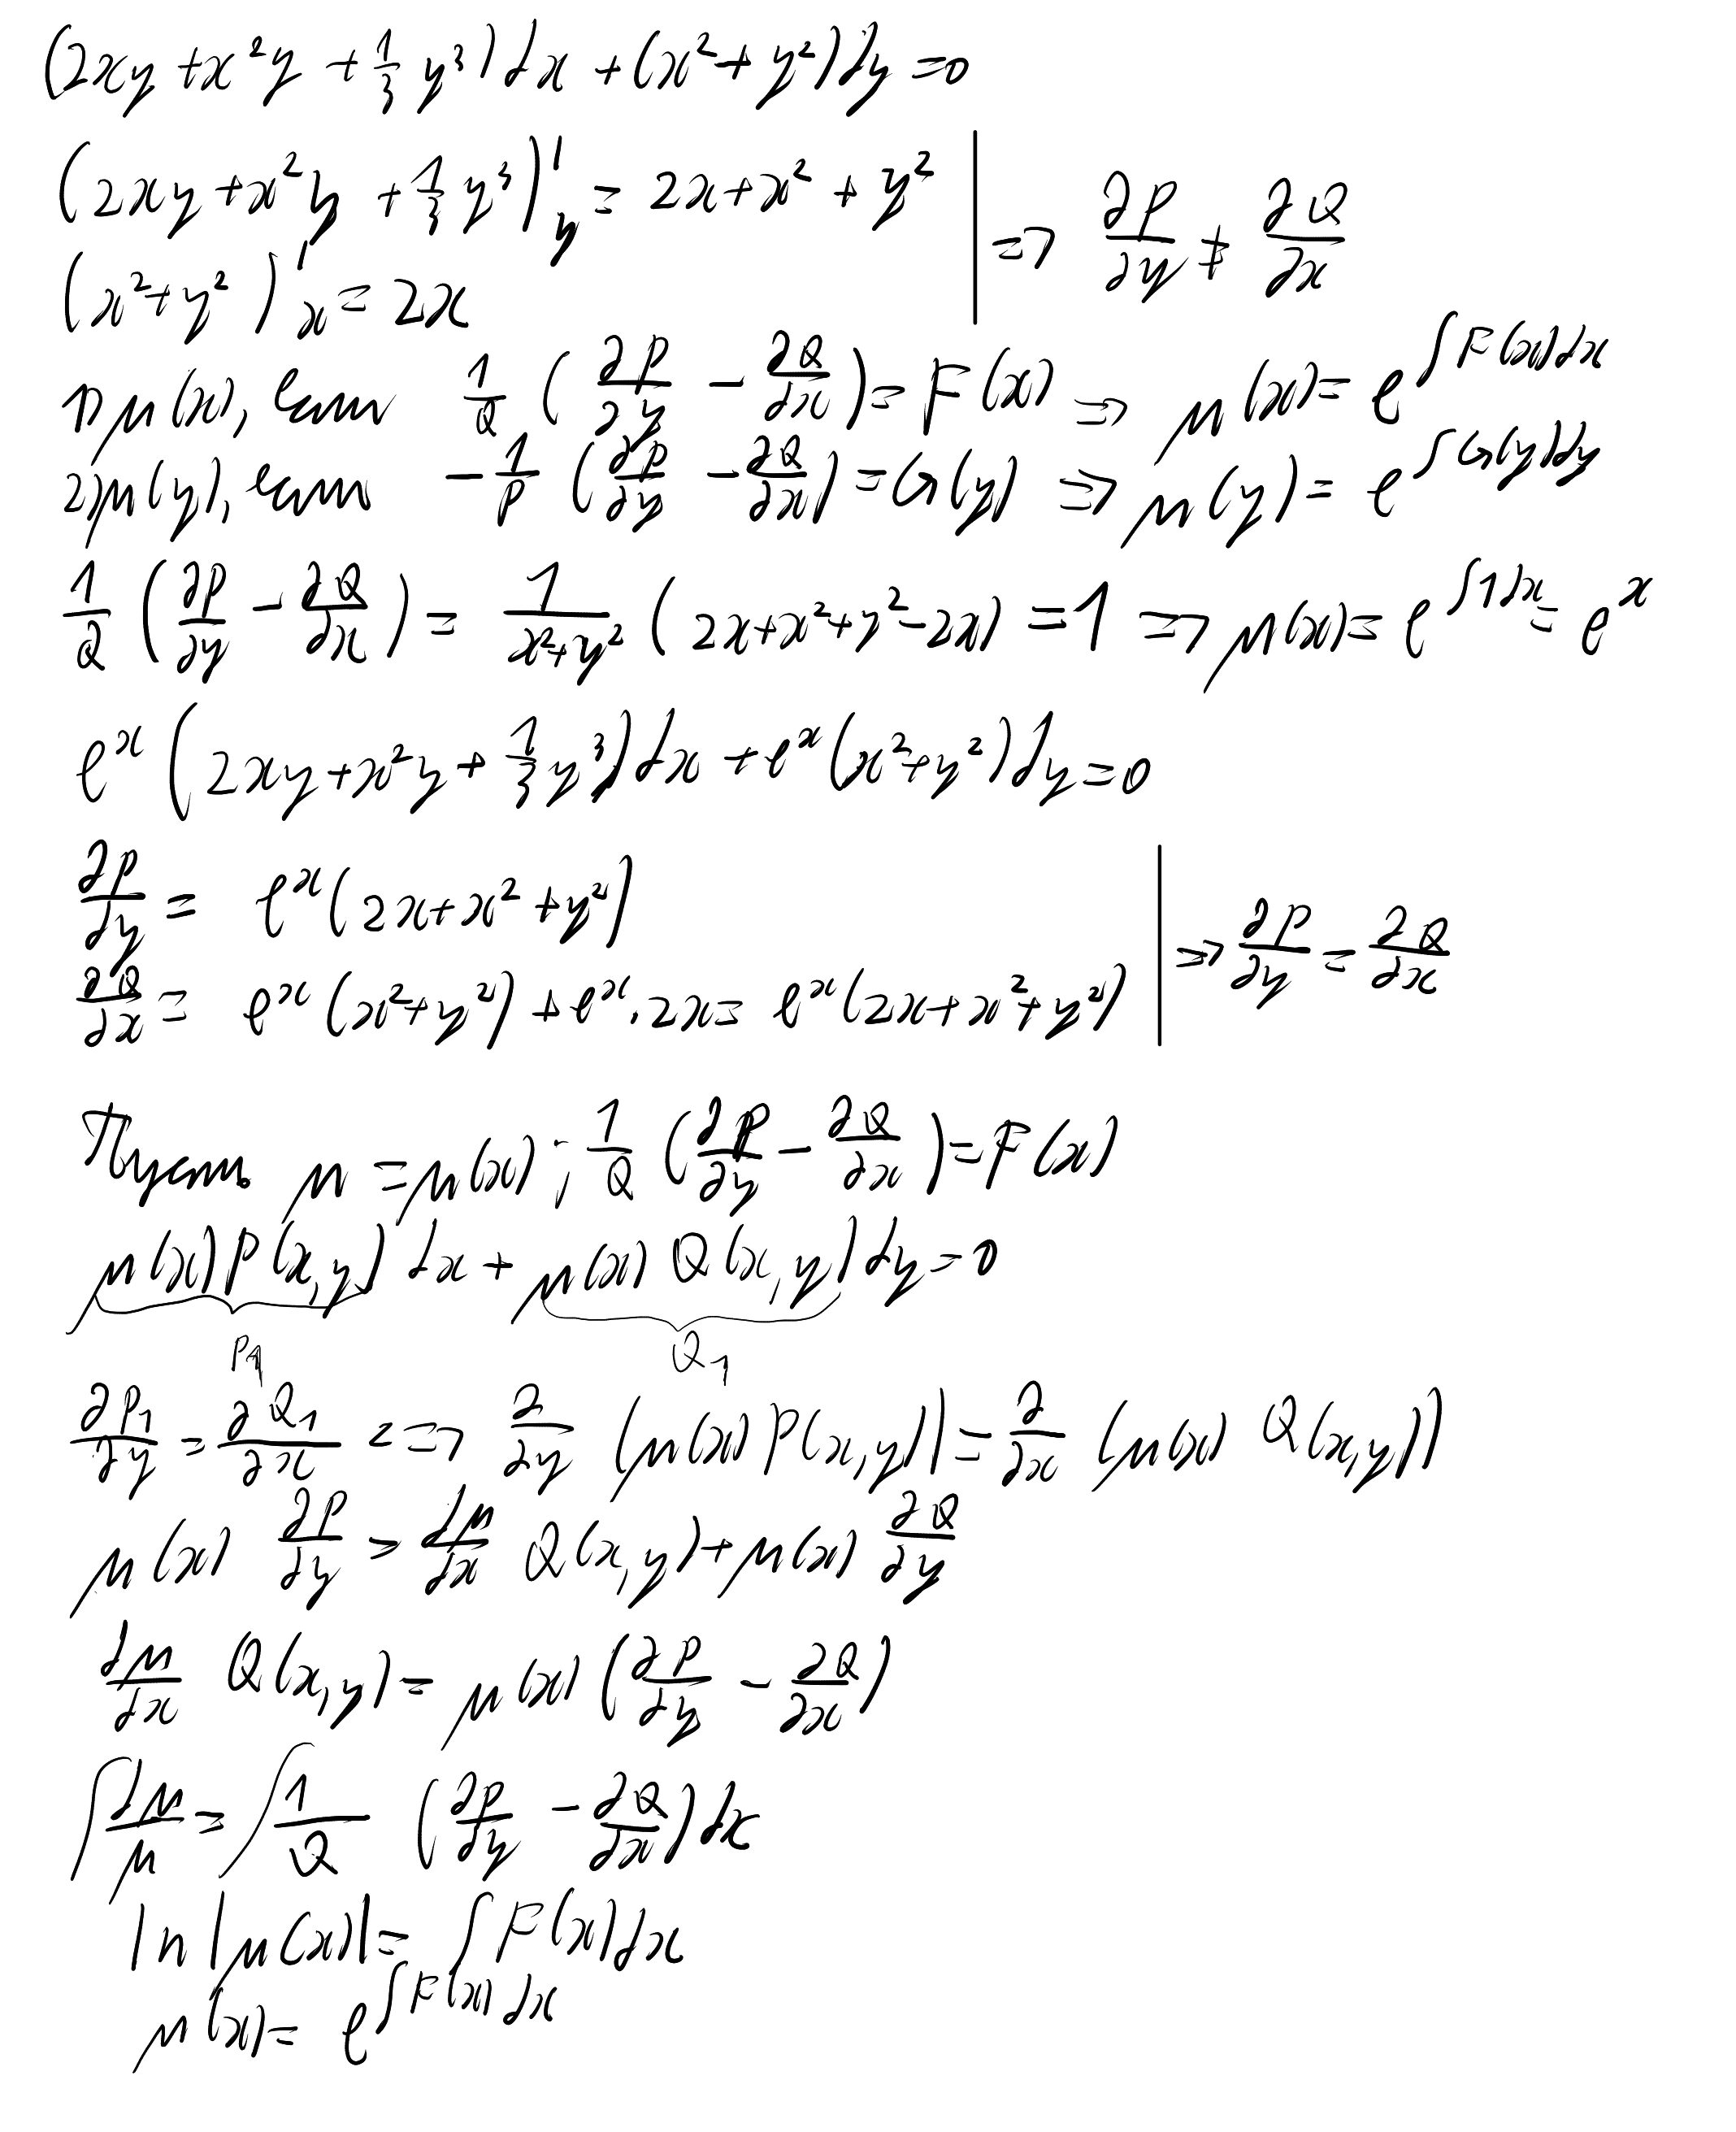 (2xy + x²y + 1/3 y³)dx + (x² + y²)dy = 0
(2xy + x²y + 1/3 y³)'y = 2x + x² + y² | => ∂P/∂y ≠ ∂Q/∂x
(x² + y²)'x = 2x
1) μ(x), если 1/Q (∂P/∂y − ∂Q/∂x) = F(x) => μ(x) = e^∫F(x)dx
2) μ(y), если −1/P (∂P/∂y − ∂Q/∂x) = G(y) => μ(y) = e^∫G(y)dy
1/Q (∂P/∂y − ∂Q/∂x) = 1/(x²+y²) (2x + x² + y² − 2x) = 1 => μ(x) = e^∫1dx = e^x
e^x (2xy + x²y + 1/3 y³)dx + e^x (x² + y²)dy = 0
∂P/∂y = e^x (2x + x² + y²)
∂Q/∂x = e^x (x² + y²) + e^x · 2x = e^x (2x + x² + y²) | => ∂P/∂y = ∂Q/∂x
Пусть μ = μ(x); 1/Q (∂P/∂y − ∂Q/∂x) = F(x)
μ(x)P(x,y)dx + μ(x)Q(x,y)dy = 0
P₁ Q₁
∂P₁/∂y = ∂Q₁/∂x <=> ∂/∂y (μ(x)P(x,y)) = ∂/∂x (μ(x) Q(x,y))
μ(x) ∂P/∂y = dμ/dx Q(x,y) + μ(x) ∂Q/∂y
dμ/dx Q(x,y) = μ(x) (∂P/∂y − ∂Q/∂x)
∫dμ/μ = ∫1/Q (∂P/∂y − ∂Q/∂x)dx
ln|μ(x)| = ∫F(x)dx
μ(x) = e^∫F(x)dx